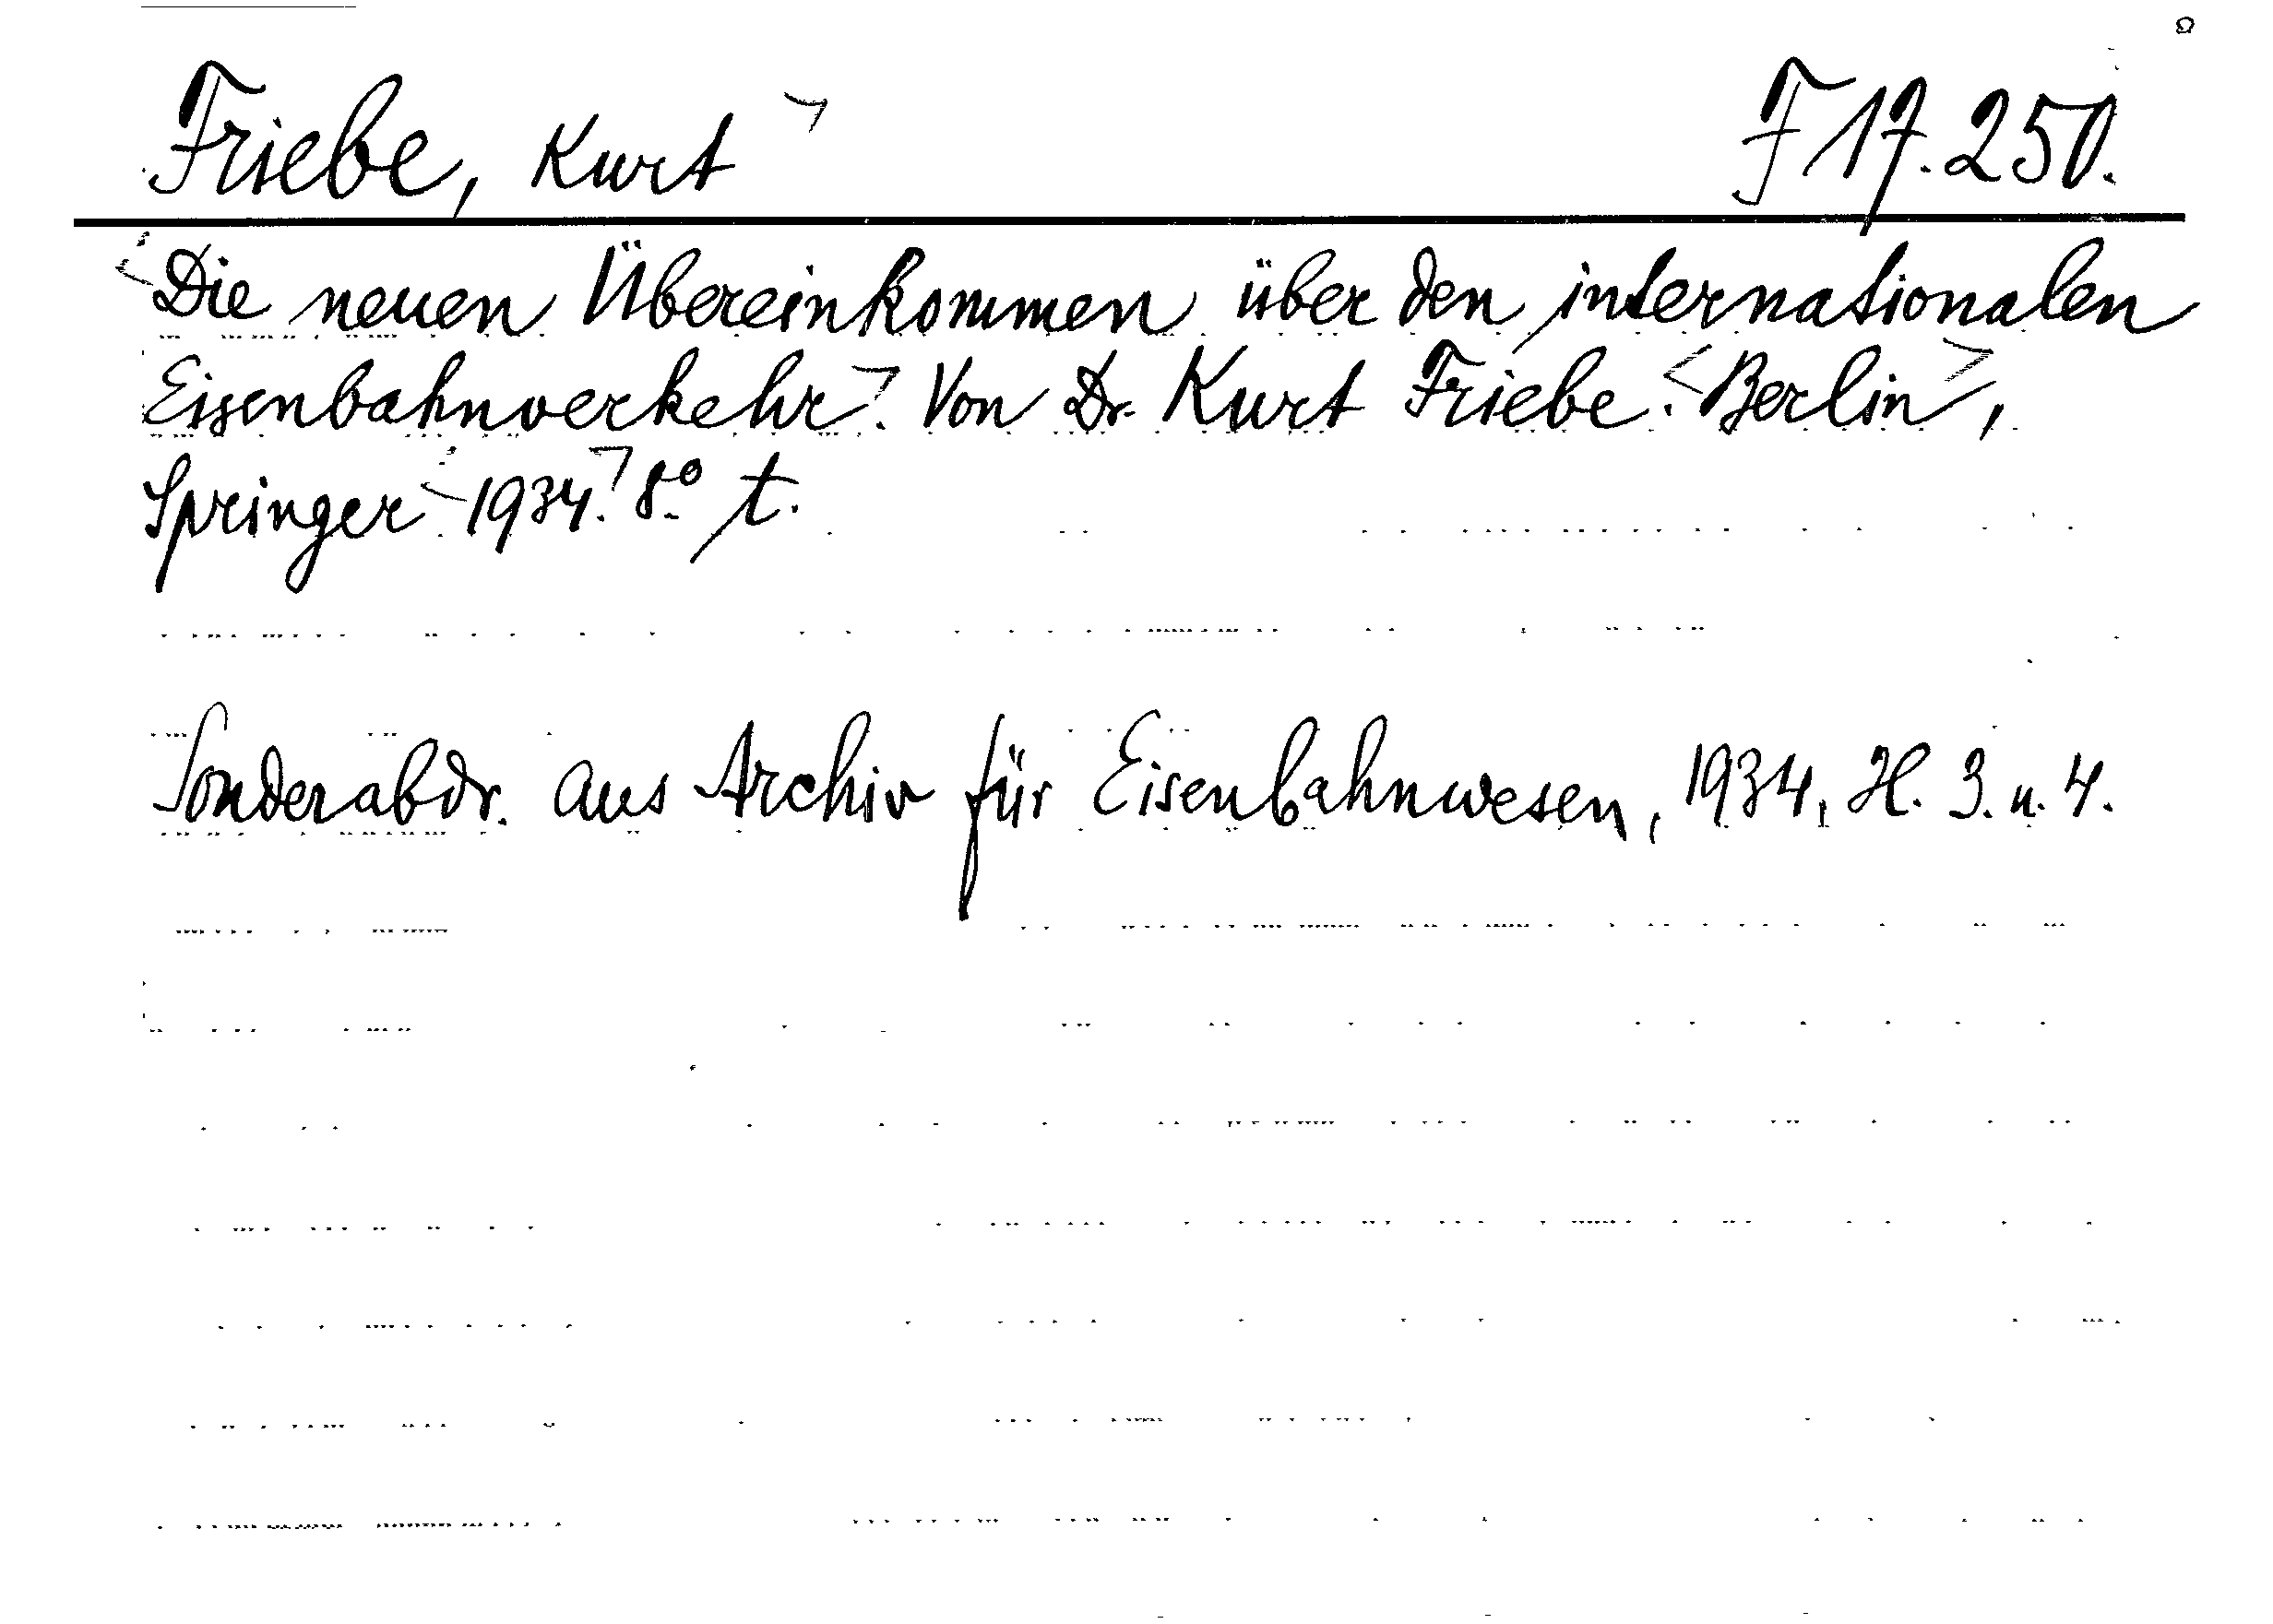 Friebe, Kurt F 17.250.
Die neuen Übereinkommen über den internationalen
Eisenbahnverkehr. Von Dr. Kurt Friebe. Berlin,
Springer 1934. 8° t.
Sonderabdr. aus Archiv für Eisenbahnwesen, 1934, H. 3. u. 4.